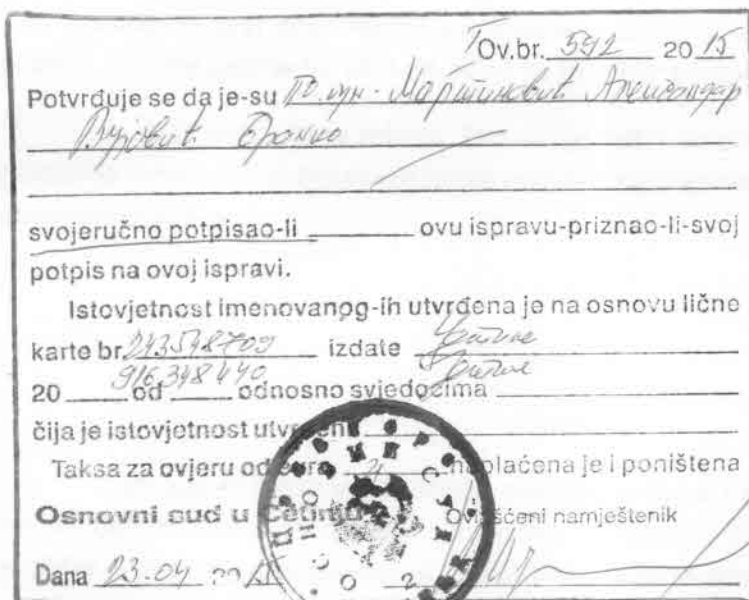 Ov.br. 592 20 15
Potvrđuje se da je-su Мартиновић Александар
Вујовић Бранко
svojeručno potpisao-li ovu ispravu-priznao-li-svoj
potpis na ovoj ispravi.
Istovjetnost imenovanog-ih utvrđena je na osnovu lične
karte br. 243548709 izdate Цетиње
916348440 Цетиње
20 od odnosno svjedocima
čija je istovjetnost utvrđena
Taksa za ovjeru od eura 4 naplaćena je i poništena
Osnovni sud u Cetinju Ovlašćeni namještenik
Dana 23.04 2015